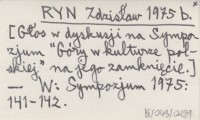 RYN Zdzisław 1975 b.
[Głos w dyskusji na Sympo-
zjum "Góry w kulturze pol-
skiej" na jego zamknięcie.]
— W: Sympozjum 1975:
141-142.